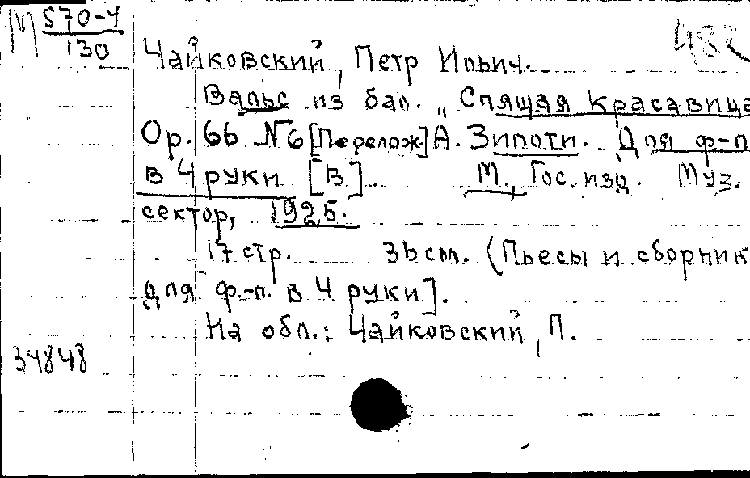 М 570-4
130
Чайковский, Петр Ильич.
Вальс из бал. „Спящая красавица
Ор. 66 №6 [Перелож] А. Зилоти. Для ф-п
в 4 руки [B] М., Гос. изд. Муз.
сектор, 1925.
17 стр. 36 см. (Пьесы и сборник
для ф.-п. в 4 руки].
На обл.: Чайковский, П.
34848